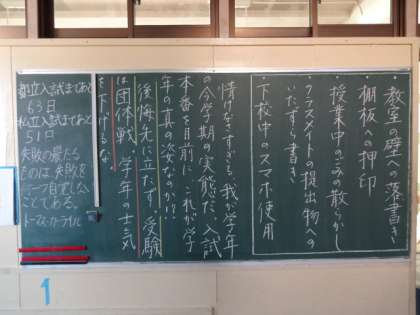 ・教室の壁への落書き
・棚板への押印
・授業中のゴミの散らかし
・クラスメイトの提出物への
いたずら書き
・下校中のスマホ使用
情けなさすぎる。我が学年
の今学期の実態だ。入試
本番を目前に、これが学
年の真の姿なのか!?
後悔先に立たず 受験
は団体戦、学年の士気
を下げるな。
都立入試まであと
63日
私立入試まであと
51日
失敗の最たる
ものは、失敗を
一つも自覚しな
ことである。
トーマス・カーライル
1